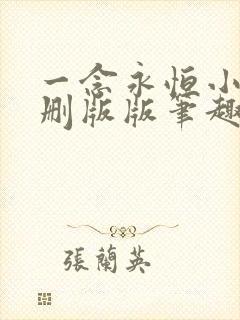 一念永恒小
删版版笔趣
張蘭英